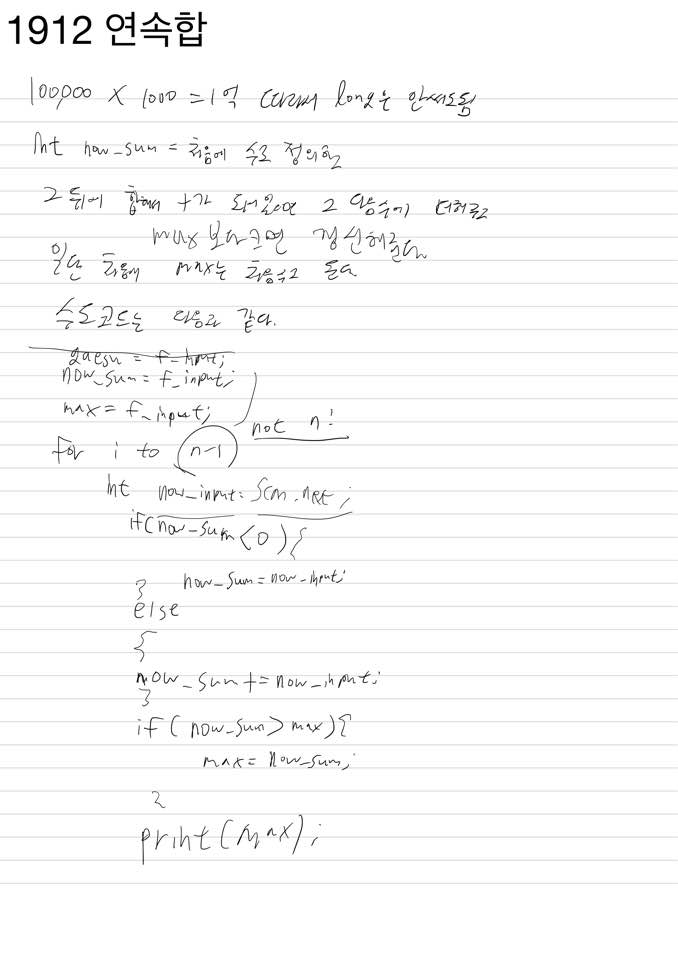 1912 연속합
100,000 X 1000 = 1억 따라서 long은 안써도됨
Int now_sum = 처음에 수로 정의함
그 뒤에 합해서 +가 되어있으면 그 다음수에 더해주고
max보다크면 갱신해준다
일단 처음에 max는 처음수고 둔다
수도코드는 다음과 같다.
= f_input;
now_sum = f_input;
max = f_input;
not n!
for i to n-1
Int now_input = Scn.next;
if(now_sum<0){
now_sum = now_input;
}
else
{
now_sum += now_input;
}
if(now_sum>max){
max = now_sum;
}
print(max);